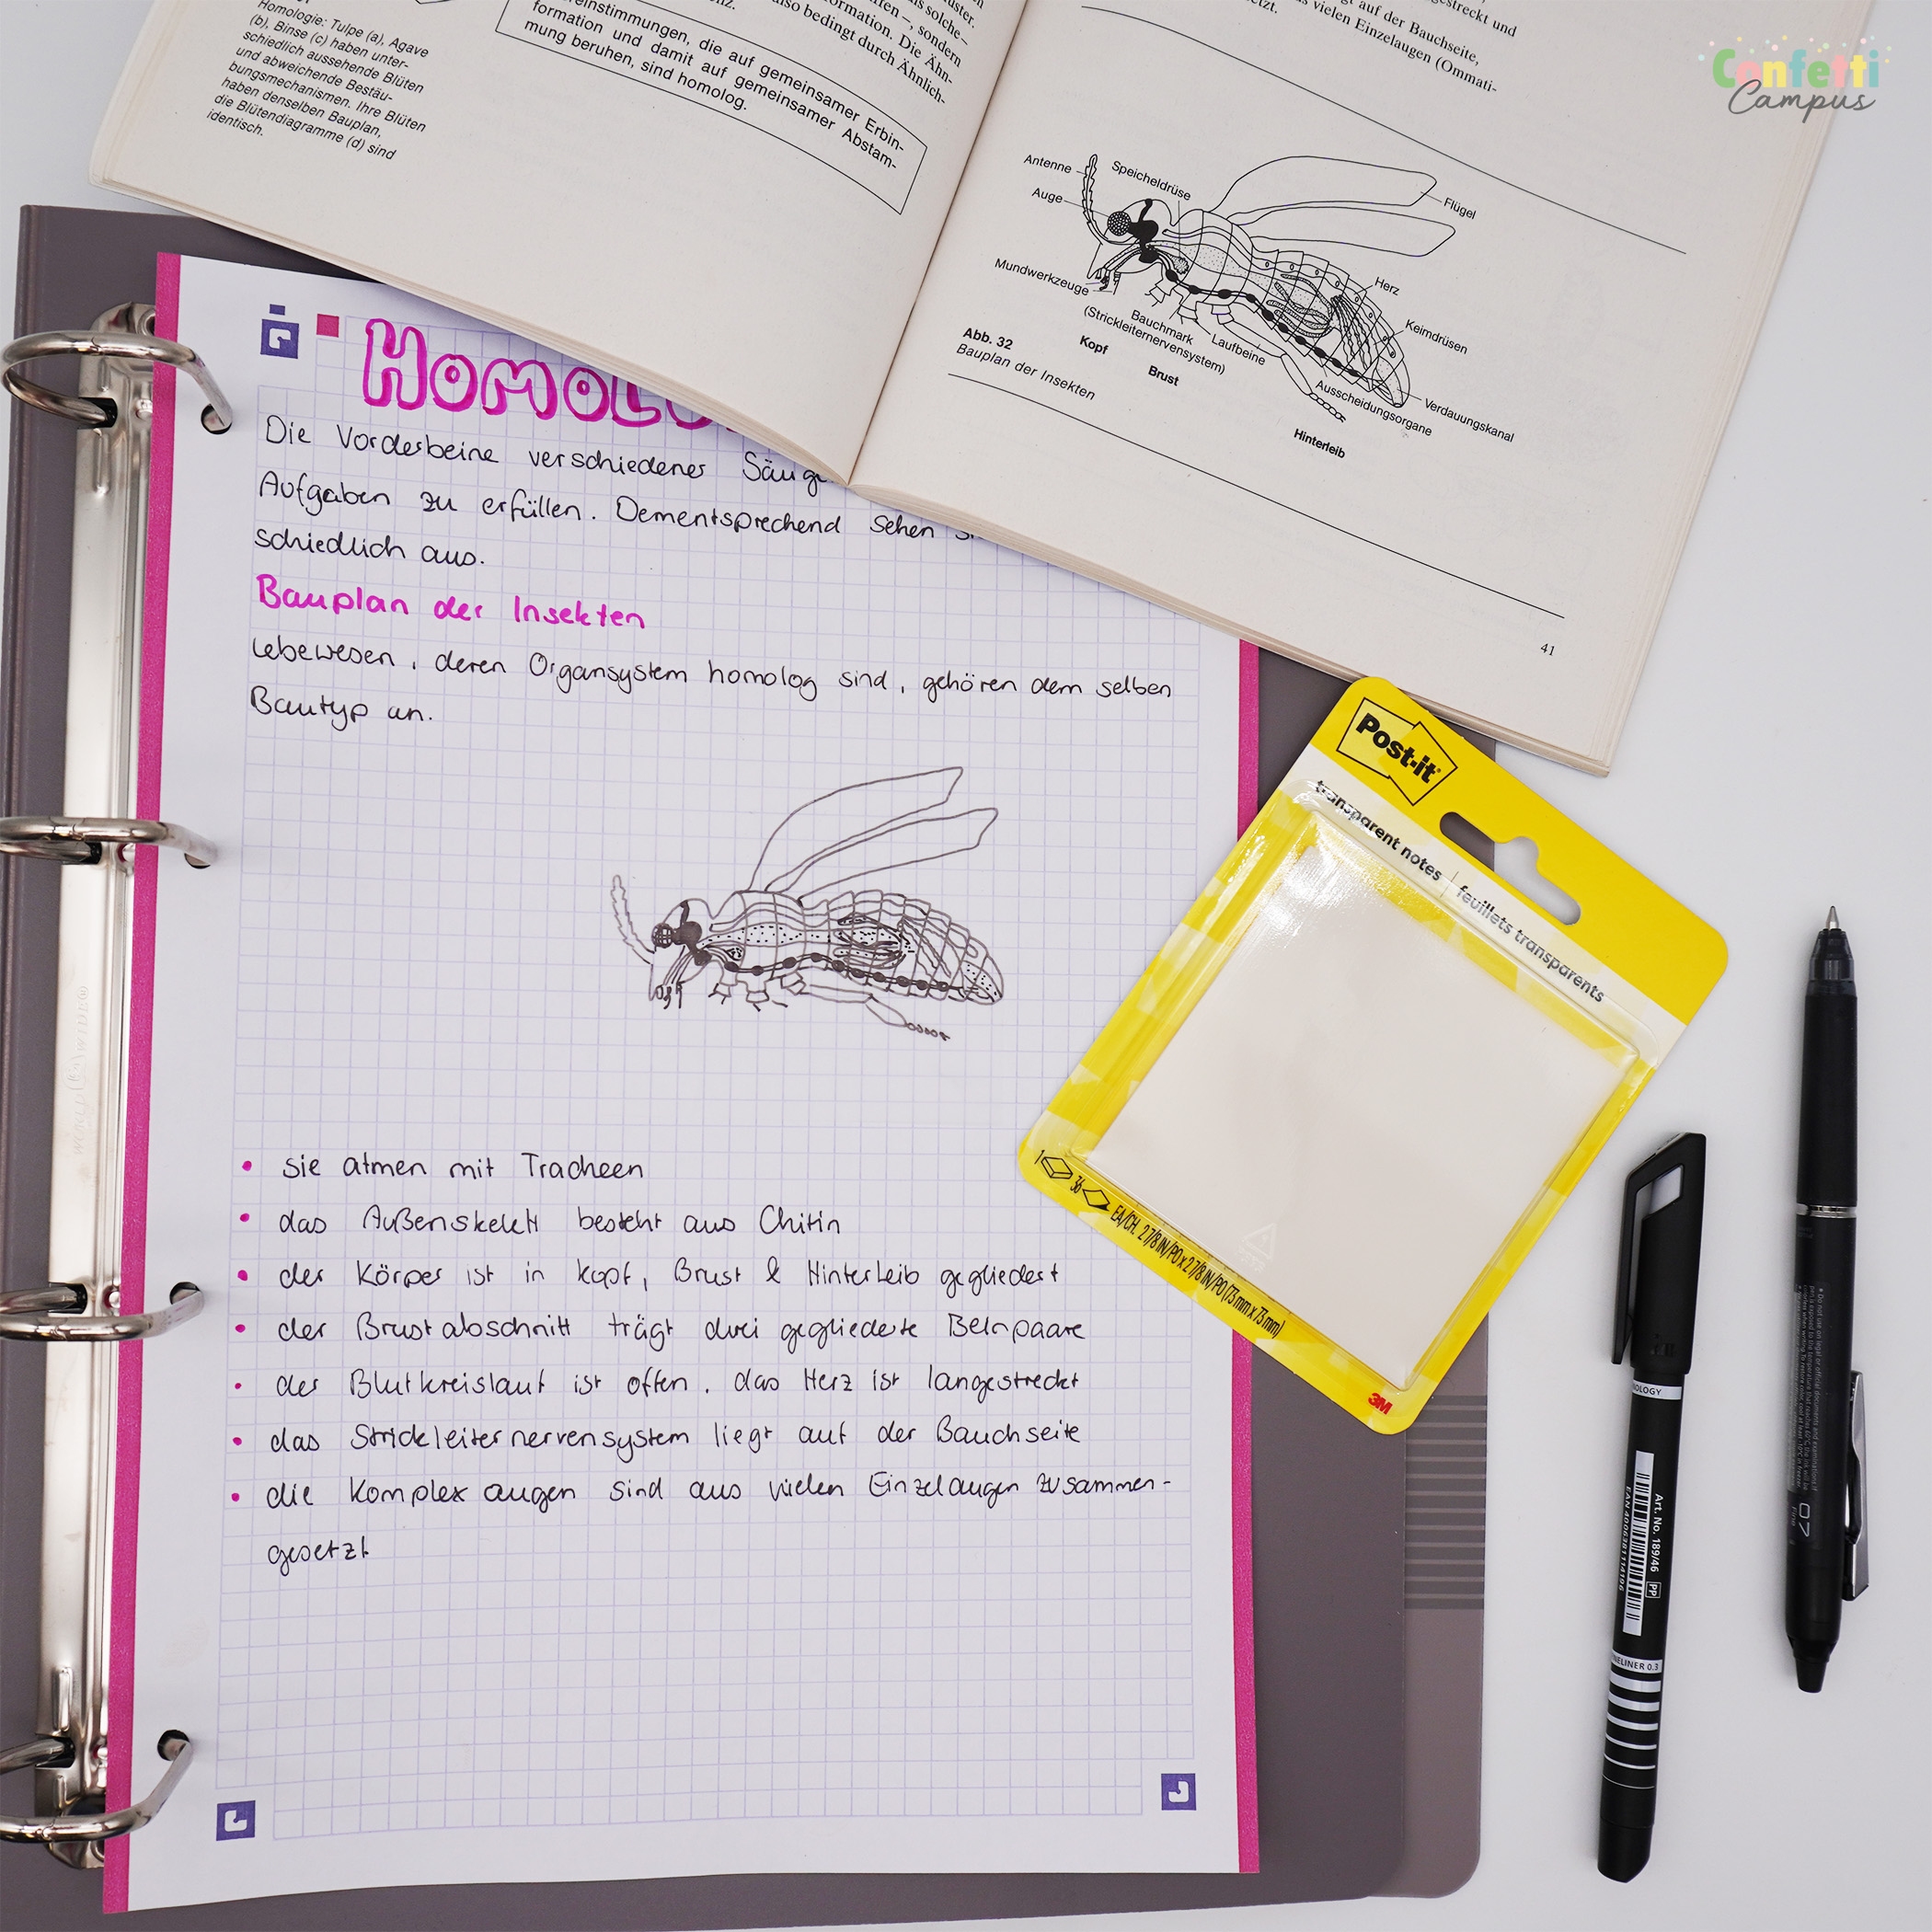 Homologie: Tulpe (a), Agave
(b), Binse (c) haben unter-
schiedlich aussehende Blüten
und abweichende Bestäu-
bungsmechanismen. Ihre Blüten
haben denselben Bauplan,
die Blütendiagramme (d) sind
identisch.
die auf gemeinsamer Erbin-
formation und damit auf gemeinsamer Abstam-
mung beruhen, sind homolog.
sondern
also bedingt durch Ähnlich-
formation. Die Ähn-
gestreckt und
auf der Bauchseite,
vielen Einzelaugen (Ommati-
Confetti
Campus
Antenne
Speicheldrüse
Flügel
Auge
Mundwerkzeuge
Herz
Bauchmark
(Strickleiternervensystem)
Laufbeine
Keimdrüsen
Kopf
Brust
Ausscheidungsorgane
Verdauungskanal
Hinterleib
Abb. 32
Bauplan der Insekten
41
Die Vorderbeine verschiedener
Aufgaben zu erfüllen. Dementsprechend sehen
schiedlich aus.
Bauplan der Insekten
Lebewesen, deren Organsystem homolog sind, gehören dem selben
Bautyp an.
• sie atmen mit Tracheen
• das Außenskelett besteht aus Chitin
• der Körper ist in Kopf, Brust & Hinterleib gegliedert
• der Brustabschnitt trägt drei gegliederte Beinpaare
• der Blutkreislauf ist offen. das Herz ist langestreckt
• das Strickleiternervensystem liegt auf der Bauchseite
• die Komplexaugen sind aus vielen Einzelaugen zusammen-
gesetzt
Post-it
transparent notes | feuillets transparents
1 36 EA/CH. 2 7/8 IN/PO x 2 7/8 IN/PO (73 mm x 73 mm)
3M
Art. No. 189/46 PP
FINELINER 0.3
07